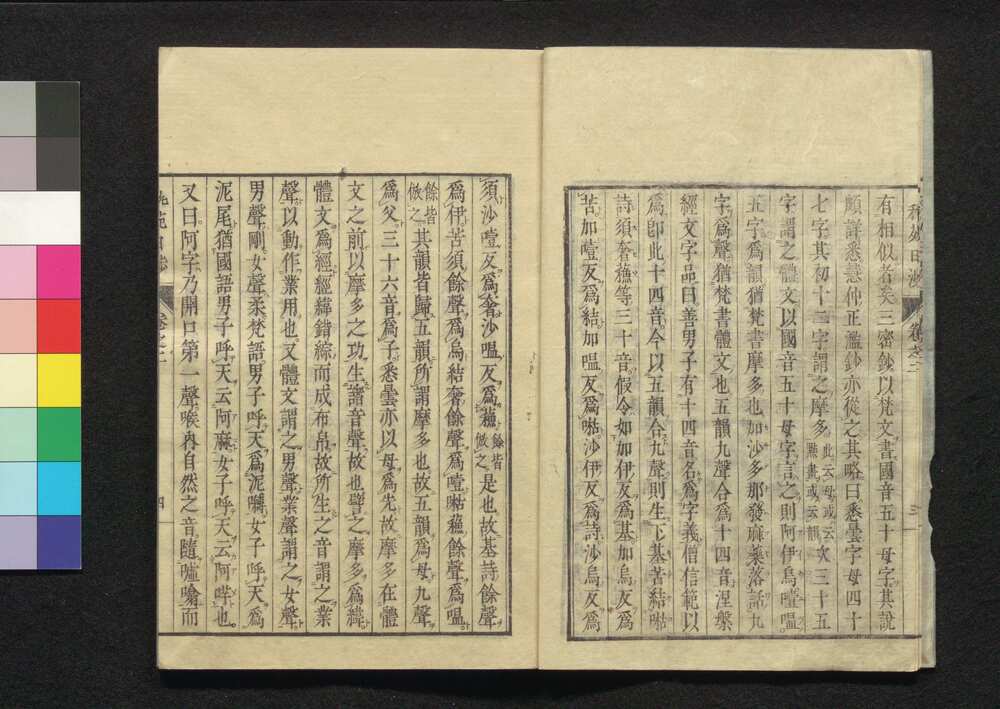 有相似者矣三密鈔以梵文書國音五十母字其説
頗詳悉慧仲正濫鈔亦從之其略曰悉曇字母四十
七字其初十二字謂之摩多此云母或云點畫或云韻次三十五
字謂之體文以國音五十母字言之則阿伊烏噎嗢
五字爲韻猶梵書摩多也加沙多那發麻藥落話九
字爲聲猶梵書體文也五韻九聲合爲十四音涅槃
經文字品曰善男子有十四音名爲字義僧信範以
爲即此十四音今以五韻合九聲則生下基苦結
詩須奢蘓等三十音假令如加伊反爲基加烏反爲
苦加噎反爲結加嗢反爲沙伊反爲詩沙烏反爲
須沙噎反爲奢沙嗢反爲蘓餘皆倣之是也故基詩餘聲
爲伊苦須餘聲爲烏結奢餘聲爲噎蘓餘聲爲嗢
餘皆倣之其韻皆歸五韻所謂摩多也故五韻爲母九聲
爲父三十六音爲子悉曇亦以母爲先故摩多在體
文之前以摩多之功生諸音聲故也譬之摩多爲緯
體文爲經經緯錯綜而成布帛故所生之音謂之業
聲以動作業用也又體文謂之男聲業聲謂之女聲
男聲剛女聲柔梵語男子呼天爲泥嚩女子呼天爲
泥尾猶國語男子呼天云阿麻女子呼天云阿也
又曰阿字乃開口第一聲喉内自然之音隨嘘噏而
卷之二
四
卷之二
三